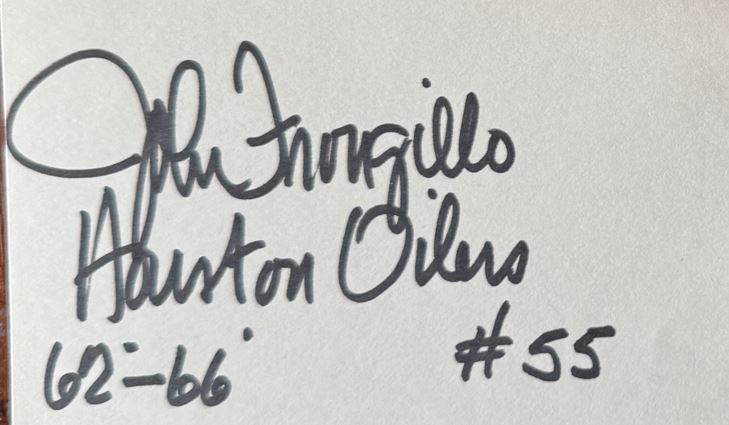 John Frongillo
Houston Oilers
62'-66' #55